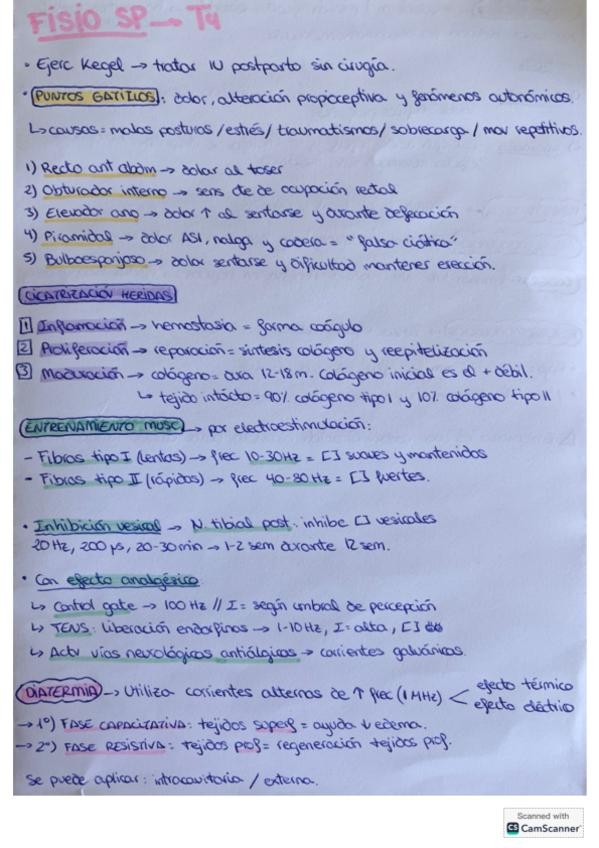 FISIO SP → T4
· Ejerc Kegel → tratar IU postparto sin cirugía.
· PUNTOS GATILLOS: dolor, alteración propioceptiva y fenómenos autonómicos.
↳ causas = malas posturas / estrés / traumatismos / sobrecarga / mov repetitivos.
1) Recto ant abdm → dolor al toser
2) Obturador interno → sens de de ocupación rectal
3) Elevador ano → dolor ↑ al sentarse y durante defecación
4) Piramidal → dolor ASI, nalga y cadera = "falsa ciática"
5) Bulboesponjoso → dolor sentarse y dificultad mantener erección.
CICATRIZACIÓN HERIDAS
1 Inflamación → hemostasia = forma coágulo
2 Proliferación → reparación = síntesis colágeno y reepitelización
3 Maduración → colágeno = dura 12-18m. Colágeno inicial es el + débil.
↳ tejido intacto = 90% colágeno tipo I y 10% colágeno tipo II
ENTRENAMIENTO MUSC → por electroestimulación:
- Fibras tipo I (lentas) → frec 10-30Hz = [] suaves y mantenidos
- Fibras tipo II (rápidas) → frec 40-80Hz = [] fuertes.
· Inhibición vesical → N. tibial post. inhibe [] vesicales
20Hz, 200 µs, 20-30min → 1-2 sem durante 12 sem.
· Con efecto analgésico
↳ Control gate → 100 Hz // I = según umbral de percepción
↳ TENS: liberación endorfinas → 1-10Hz, I = alta, []
↳ Activ vías neurológicas antiálgicas → corrientes galvánicas.
DIATERMIA → Utiliza corrientes alternas de ↑ frec (1 MHz) < efecto térmico
efecto eléctrico
→ 1º) FASE CAPACITATIVA: tejidos superf = ayuda ↓ edema.
→ 2º) FASE RESISTIVA: tejidos prof = regeneración tejidos prof.
Se puede aplicar: intracavitaria / externa.
Scanned with
CS CamScanner